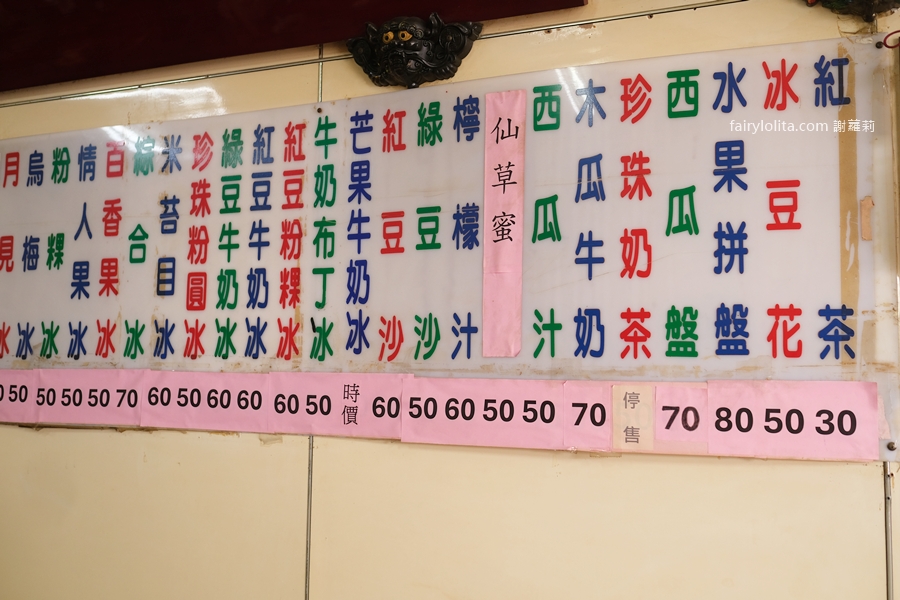 紅茶
冰豆花
水果拼盤
西瓜盤
珍珠奶茶
木瓜牛奶
西瓜汁
仙草蜜
檸檬汁
綠豆沙
紅豆沙
芒果牛奶冰
牛奶布丁冰
紅豆粉粿冰
紅豆牛奶冰
綠豆牛奶冰
珍珠粉圓冰
米苔目冰
綜合冰
百香果冰
情人果冰
粉粿冰
烏梅冰
月見冰
50 50 50 50 70 60 50 60 60 60 50 時價 60 50 60 50 50 70 停售 70 80 50 30
fairylolita.com 謝蘿莉